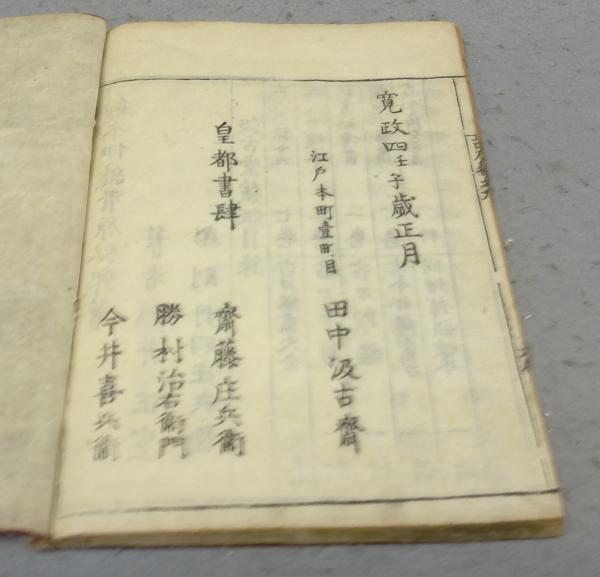 寛政四壬子歳正月
江戸本町壹町目
田中汲古齋
皇都書肆
齋藤庄兵衞
勝村治右衞門
今井喜兵衞